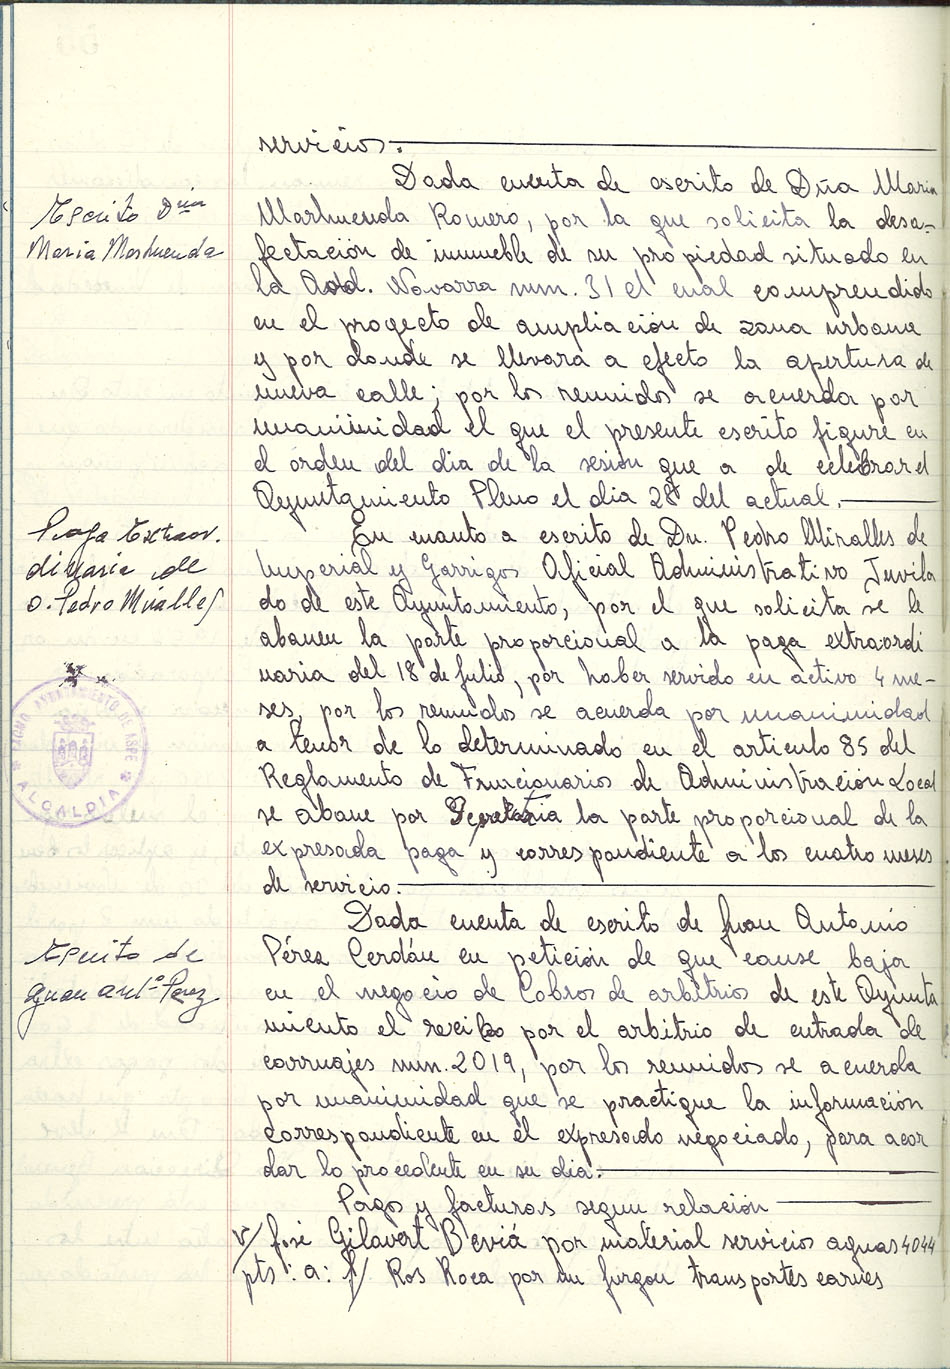 servicios.
Escrito Dña
Maria Marhuenda
Dada cuenta de escrito de Dña Maria
Marhuenda Romero, por la que solicita la desa-
fectación de inmueble de su propiedad situado en
la Avd. Navarra num. 31 el cual comprendido
en el proyecto de ampliación de zona urbana
y por donde se llevara a efecto la apertura de
nueva calle; por los reunidos se acuerda por
unanimidad el que el presente escrito figure en
el orden del dia de la sesión que a de celebrar el
Ayuntamiento Pleno el dia 28 del actual.
Paga Extraor.
dinaria de
D. Pedro Miralles
En cuanto a escrito de Dn. Pedro Miralles de
Imperial y Garrigos Oficial Administrativo Juvila
do de este Ayuntamiento, por el que solicita se le
abonen la parte proporcional a la paga extraordi
naria del 18 de Julio, por haber servido en activo 4 me-
ses, por los reunidos se acuerda por unanimidad
a tenor de lo determinado en el articulo 85 del
Reglamento de Funcionarios de Administración Local
se abone por Secretaria la parte proporcional de la
expresada paga y correspondiente a los cuatro meses
de servicio.
AYUNTAMIENTO DE ASPE
ALCALDIA
Escrito de
Juan Antº Perez
Dada cuenta de escrito de Juan Antonio
Pérez Cerdán en petición de que cause baja
en el negocio de Cobros de arbitrios de este Ayunta
miento el recibo por el arbitrio de entrada de
carruajes num. 2019, por los reunidos se acuerda
por unanimidad que se practique la información
correspondiente en el expresado negociado, para acor
dar lo procedente en su dia.
Pagos y facturas segun relación
v/ José Gilavert Beviá por material servicios aguas 4044
pts: a: f/ Ros Roca por un furgon transportes carnes